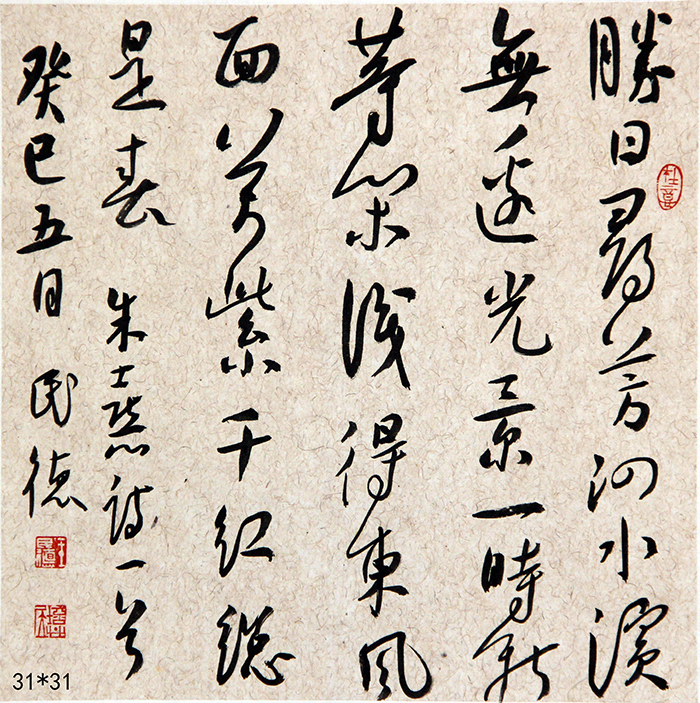 勝日尋芳泗水濱
無邊光景一時新
等閑識得東風
面萬紫千紅總
是春 朱熹詩一首
癸巳五月 民德
31*31